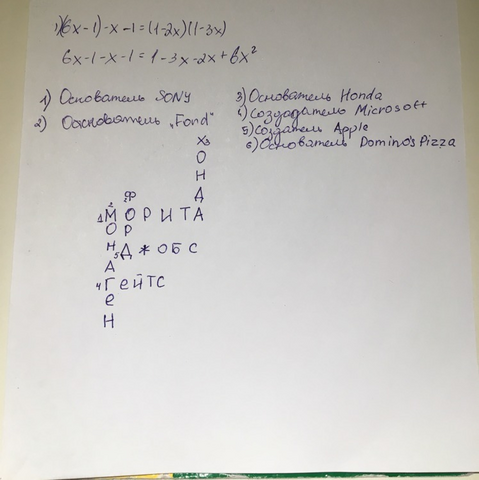 1)(6x-1)-x-1=(1-2x)(1-3x)
6x-1-x-1=1-3x-2x+6x²
1) Основатель SONY
2) Основатель „Ford"
3) Основатель Honda
4) Создадатель Microsoft
5) Создатель Apple
6) Основатель Domino's Pizza
Х3
О
Н
Ф Д
1М2 О Р И Т А
О Р
Н 5Д Ж О Б С
А
4Г е Й Т С
е
Н